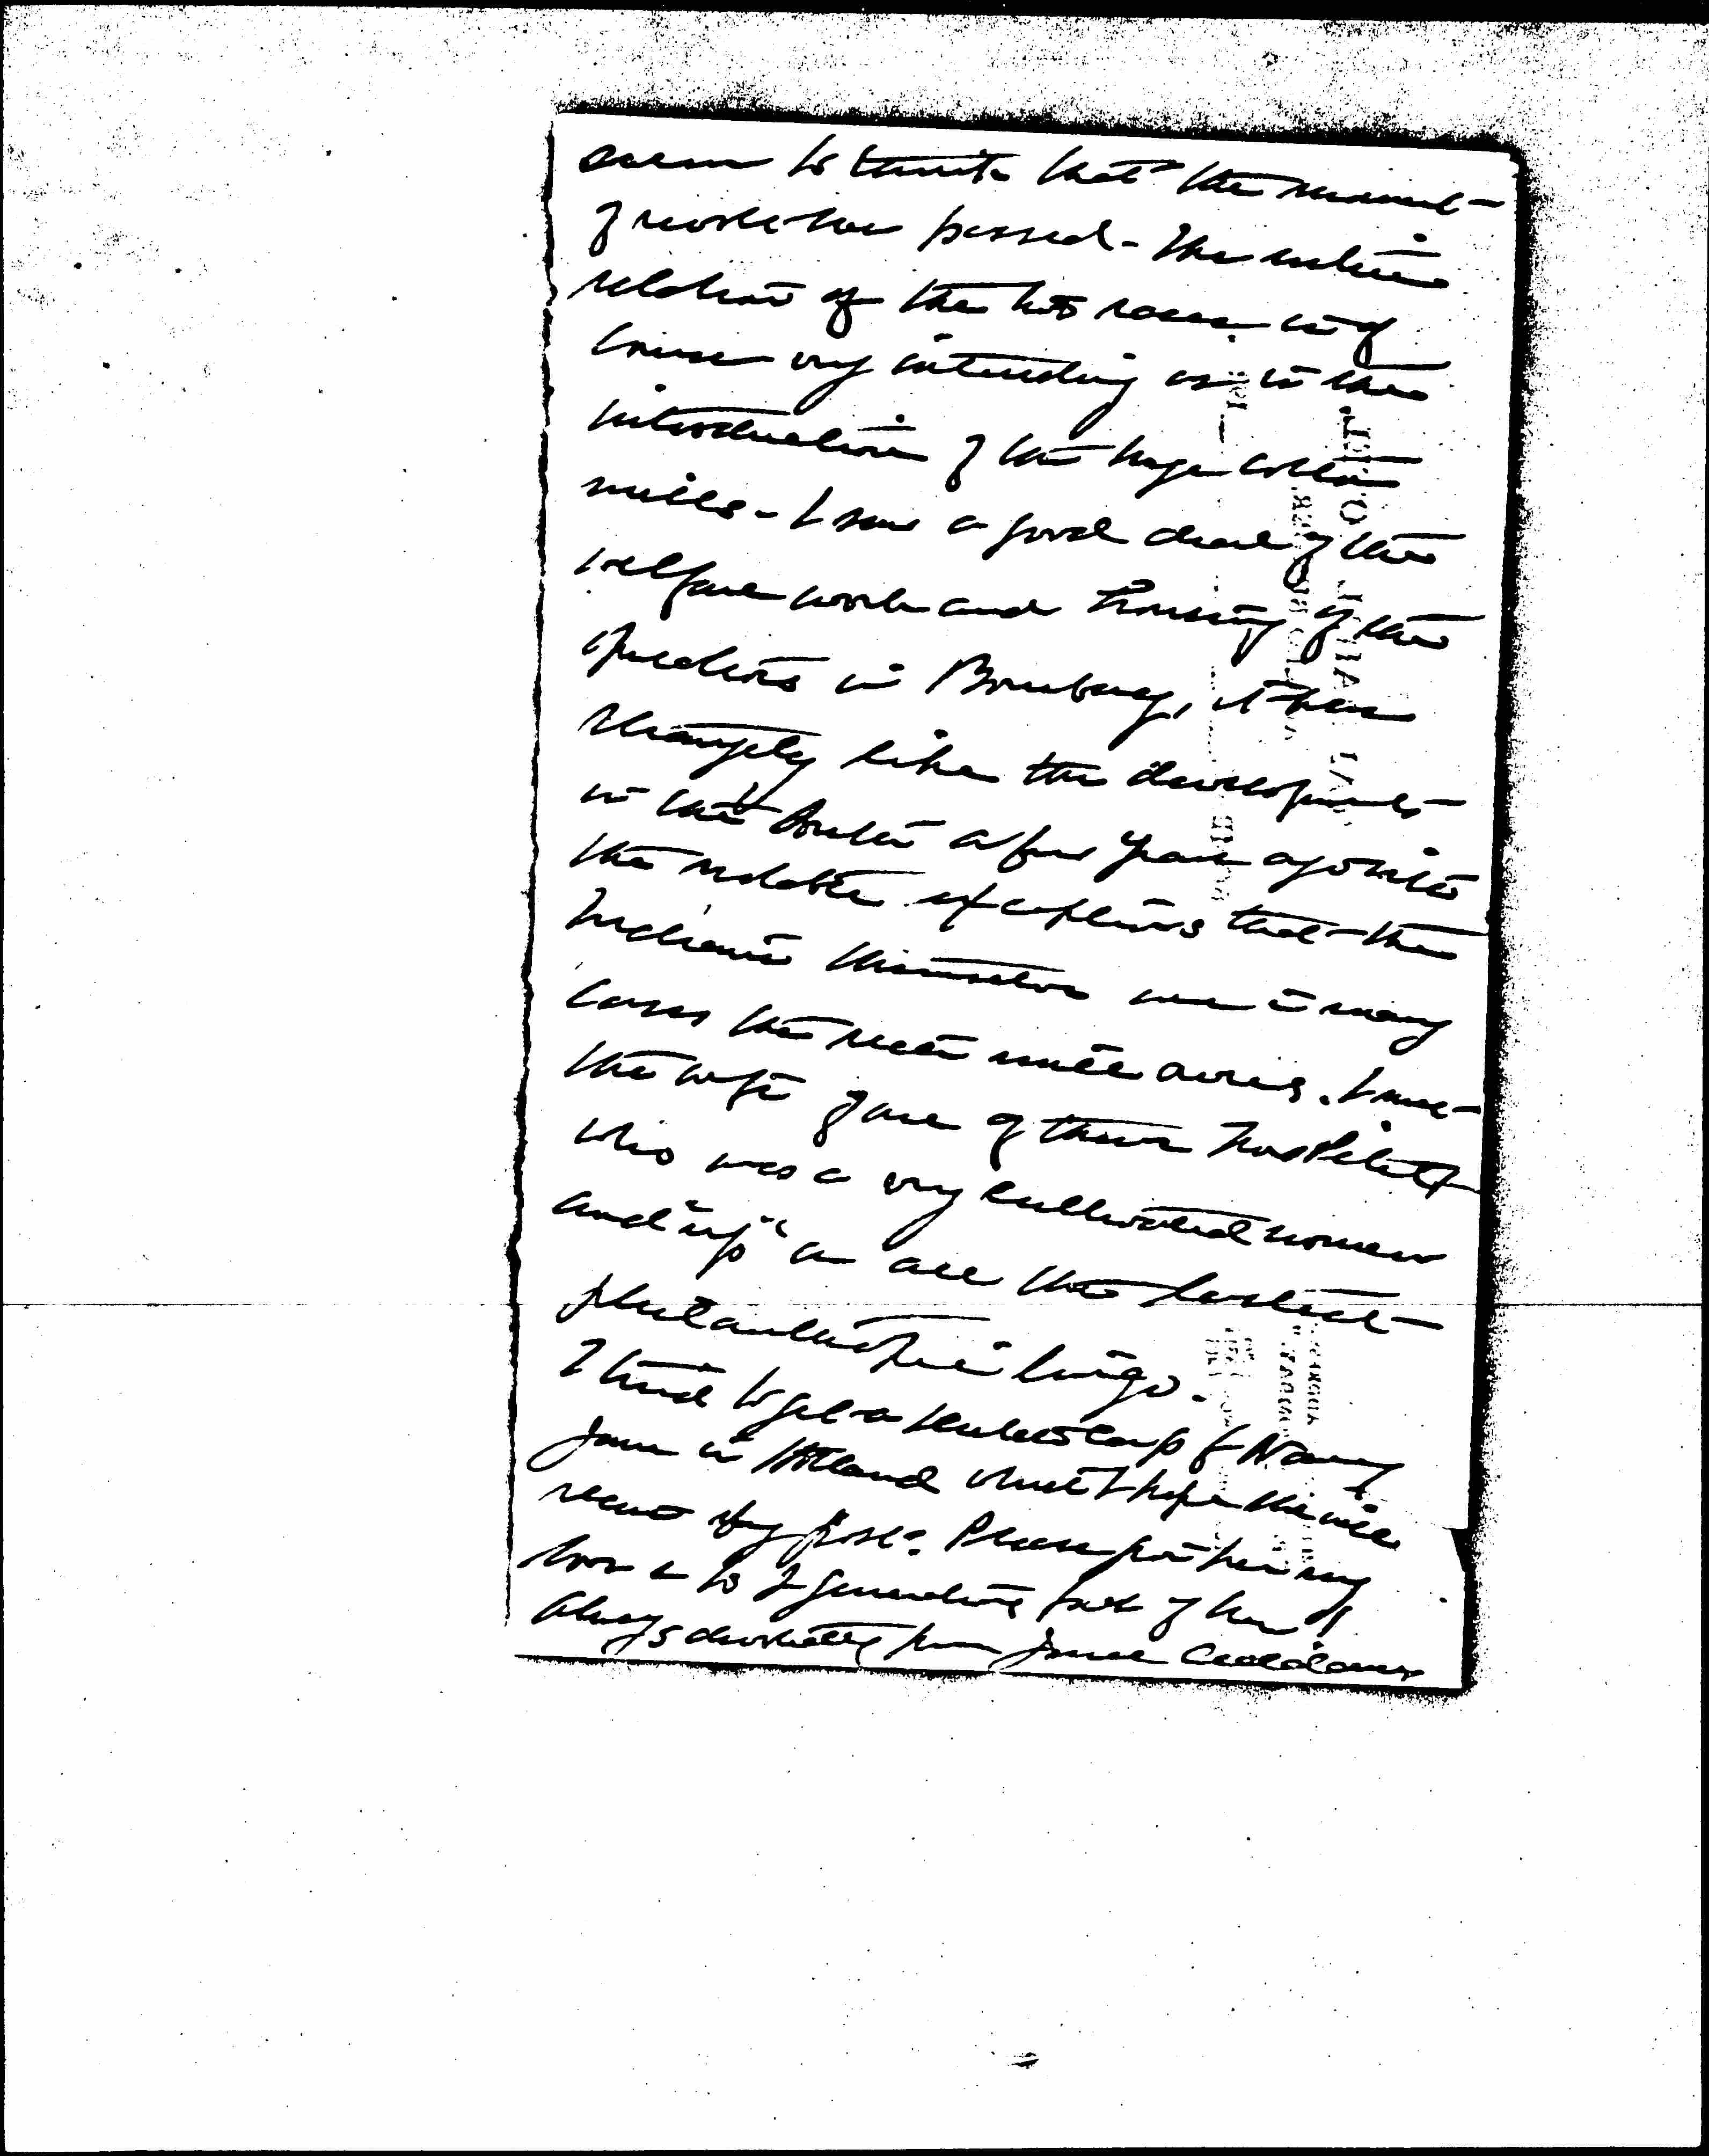 seem to think that the moment
of revolt has passed - The entire
relation of the two races is of
course very interesting as is the
introduction of the huge cotton
mills - I saw a good deal of the
welfare work and housing of the
operatives in Bombay, it was
strangely like the development
in the South a few years ago with
the notable exceptions that the
Indians themselves are in many
cases the rich mill owners. I met
the wife of one of them
who was a very cultivated woman
and "up" on all the latest
philanthropic lingo.
I tried to get a Dutch cap for Nancy
Jane in Holland which I hope she will
receive by post. Please give her my
love &
Always devotedly yours Jane Addams